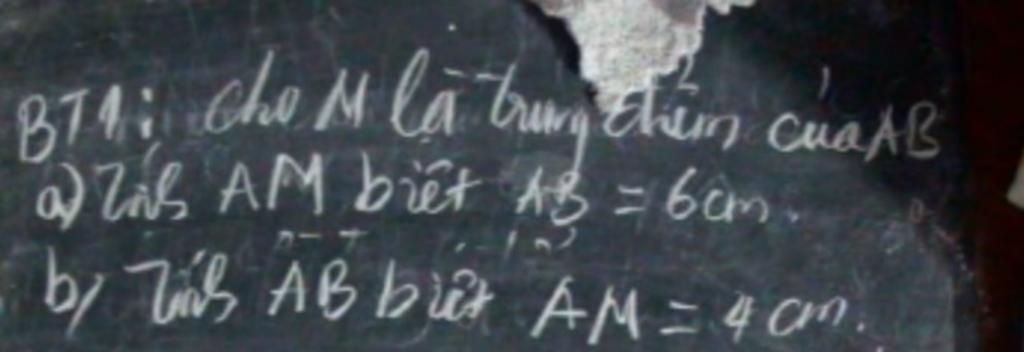 BT1: Cho M là trung điểm của AB
a) Tính AM biết AB = 6cm.
b) Tính AB biết AM = 4cm.